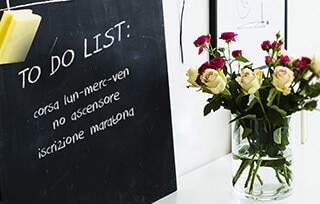 TO DO LIST:
corsa lun-merc-ven
no ascensore
iscrizione maratona